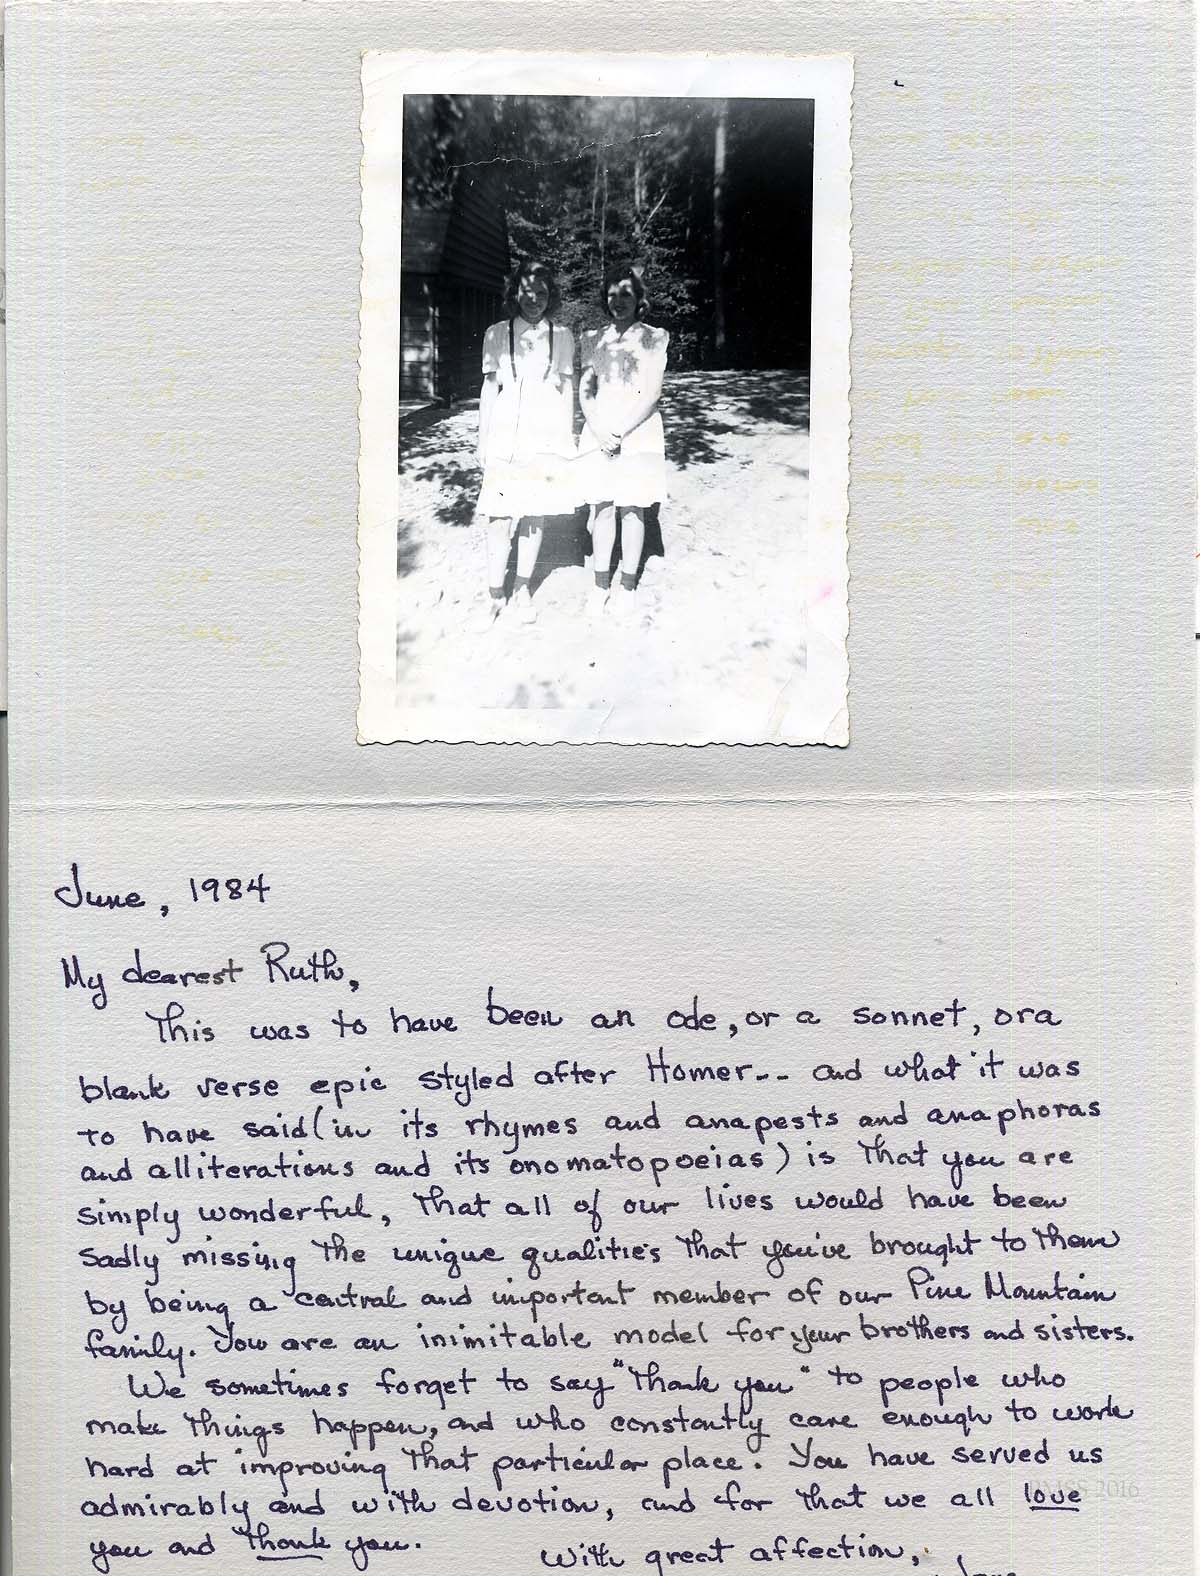 June, 1984
My dearest Ruth,
This was to have been an ode, or a sonnet, or a
blank verse epic styled after Homer-- and what it was
to have said (in its rhymes and anapests and anaphoras
and alliterations and its onomatopoeias) is that you are
simply wonderful, that all of our lives would have been
sadly missing the unique qualities that you've brought to them
by being a central and important member of our Pine Mountain
family. You are an inimitable model for your brothers and sisters.
We sometimes forget to say "thank you" to people who
make things happen, and who constantly care enough to work
hard at improving that particular place. You have served us
admirably and with devotion, and for that we all love
PMSS 2016
you and thank you.
With great affection,